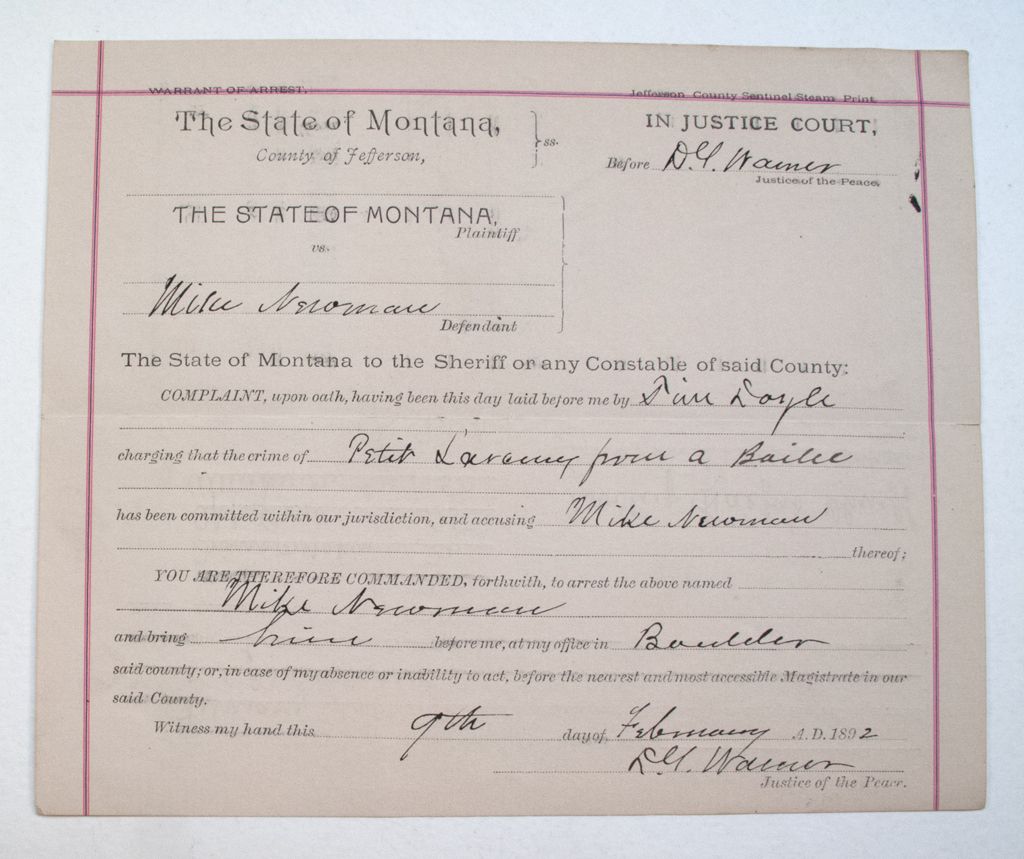 WARRANT OF ARREST.
Jefferson County Sentinel Steam Print.
The State of Montana, ss.
County of Jefferson,
IN JUSTICE COURT,
Before D.G. Warner
Justice of the Peace.
THE STATE OF MONTANA,
Plaintiff,
vs.
Mike Newman
Defendant
The State of Montana to the Sheriff or any Constable of said County:
COMPLAINT, upon oath, having been this day laid before me by Tim Doyle
charging that the crime of Petit Larceny from a Bailee
has been committed within our jurisdiction, and accusing Mike Newman
thereof;
YOU ARE THEREFORE COMMANDED, forthwith, to arrest the above named
Mike Newman
and bring him before me, at my office in Boulder
said county; or, in case of my absence or inability to act, before the nearest and most accessible Magistrate in our
said County.
Witness my hand this 9th day of February A. D. 1892
D.G. Warner
Justice of the Peace.